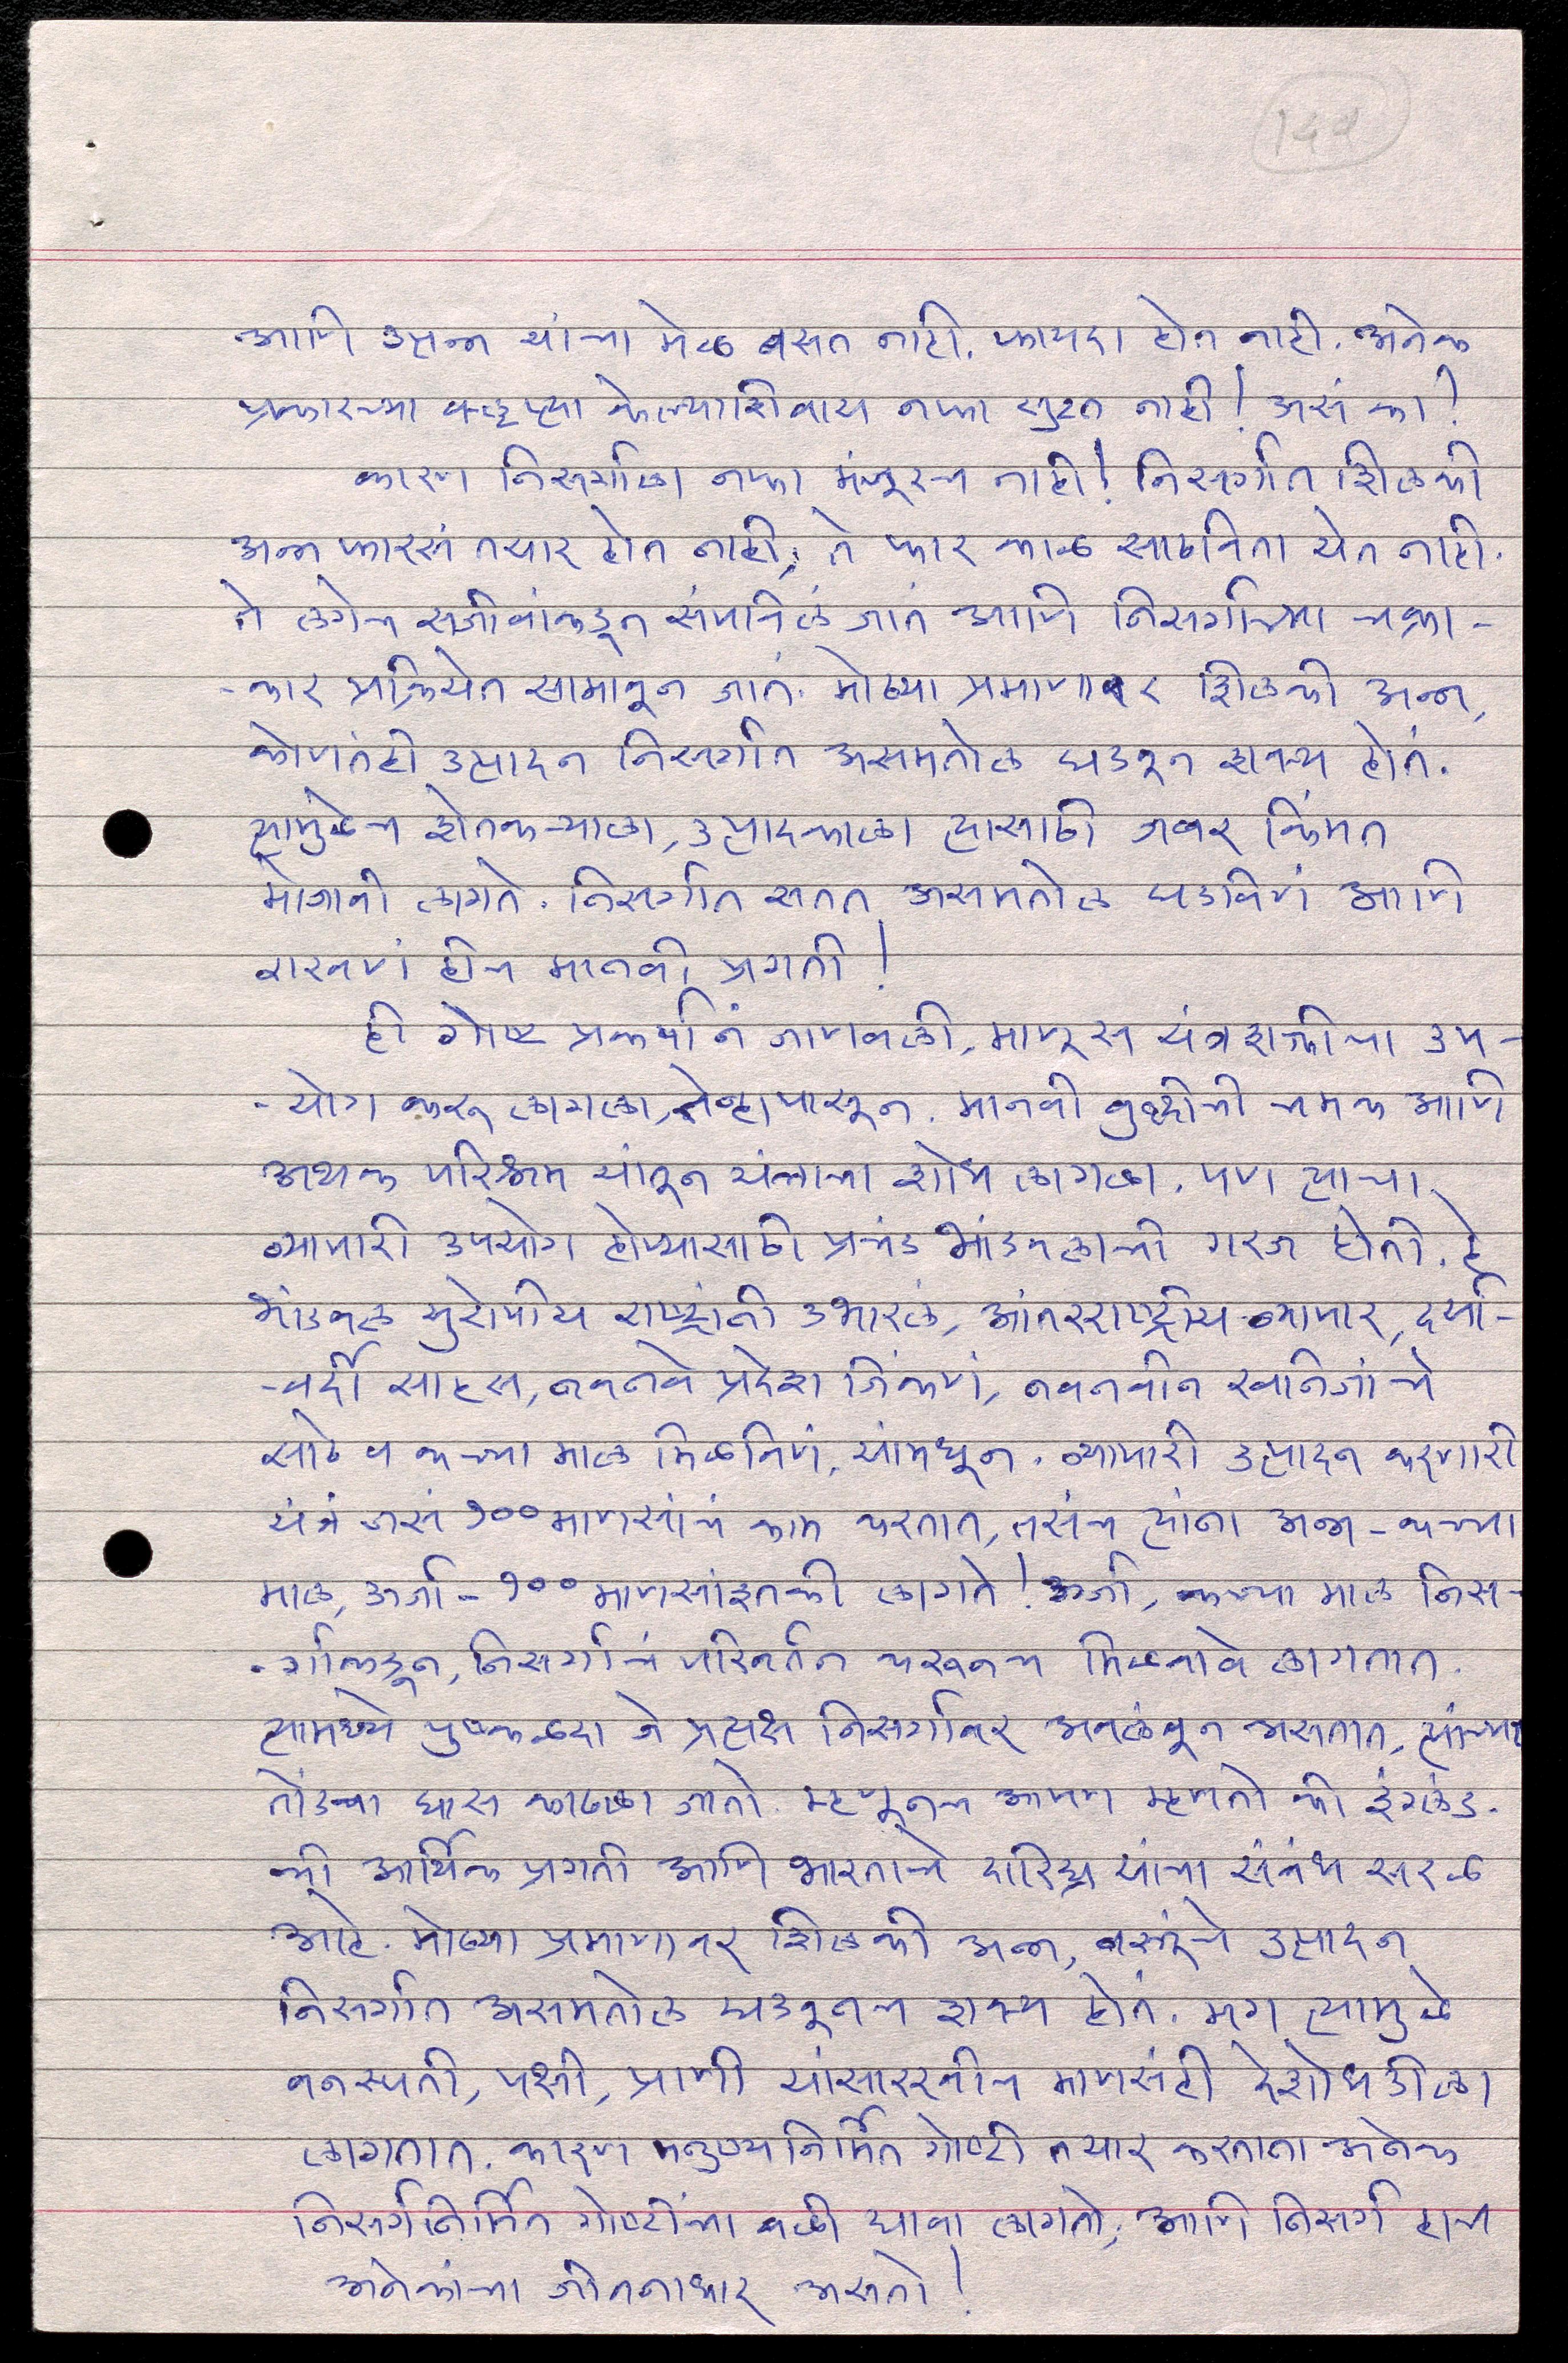 आणि उत्पन्न यांचा मेळ बसत नाही. फायदा होत नाही. अनेक
प्रकारच्या क्लृप्त्या केल्याशिवाय नफा सुटत नाही! असं का!
कारण निसर्गाला नफा मंजूरच नाही! निसर्गात शिलकी
अन्न फारसं तयार होत नाही; ते फार काळ साठविता येत नाही.
ते लगेच सजीवांकडून संपविलं जातं आणि निसर्गाच्या चक्रा-
-कार प्रक्रियेत सामावून जातं. मोठ्या प्रमाणावर शिलकी अन्न,
कोणतंही उत्पादन निसर्गात असमतोल घडवून शक्य होतं.
त्यामुळेच शेतकऱ्याला, उत्पादकाला त्यासाठी जबर किंमत
मोजावी लागते. निसर्गात सतत असमतोल घडविणं आणि
राखणं हीच मानवी प्रगती!
ही गोष्ट प्रकर्षानं जाणवली, माणूस यंत्रशक्तीचा उप-
-योग करू लागला, तेव्हापासून. मानवी बुद्धीची चमक आणि
अथक परिश्रम यांतून यंत्राचा शोध लागला. पण त्याचा
व्यापारी उपयोग होण्यासाठी प्रचंड भांडवलाची गरज होती. हे
भांडवल युरोपीय राष्ट्रांनी उभारलं, आंतरराष्ट्रीय व्यापार, दर्या-
-वर्दी साहस, नवनवे प्रदेश जिंकणं, नवनवीन खनिजांचे
साठे व कच्चा माल मिळविणं, यांमधून. व्यापारी उत्पादन करणारी
यंत्रं जसं १०० माणसांचं काम करतात, तसंच त्यांना अन्न - कच्चा
माल, ऊर्जा - १०० माणसांइतकी लागते! ऊर्जा, कच्चा माल निस-
-र्गाकडून, निसर्गाचं परिवर्तन करूनच मिळवावे लागतात.
त्यामध्ये पुष्कळदा जे प्रत्यक्ष निसर्गावर अवलंबून असतात, त्यांच्या
तोंडचा घास काढला जातो. म्हणूनच आपण म्हणतो की इंग्लंड-
ची आर्थिक प्रगती आणि भारताचे दारिद्र्य यांचा संबंध सरळ
आहे. मोठ्या प्रमाणावर शिलकी अन्न, वस्तूंचे उत्पादन
निसर्गात असमतोल घडवूनच शक्य होतं. मग त्यामुळे
वनस्पती, पक्षी, प्राणी यांसारखीच माणसंही देशोधडीला
लागतात. कारण मनुष्यनिर्मित गोष्टी तयार करताना अनेक
निसर्गनिर्मित गोष्टींचा बळी द्यावा लागतो, आणि निसर्ग हाच
अनेकांचा जीवनाधार असतो!